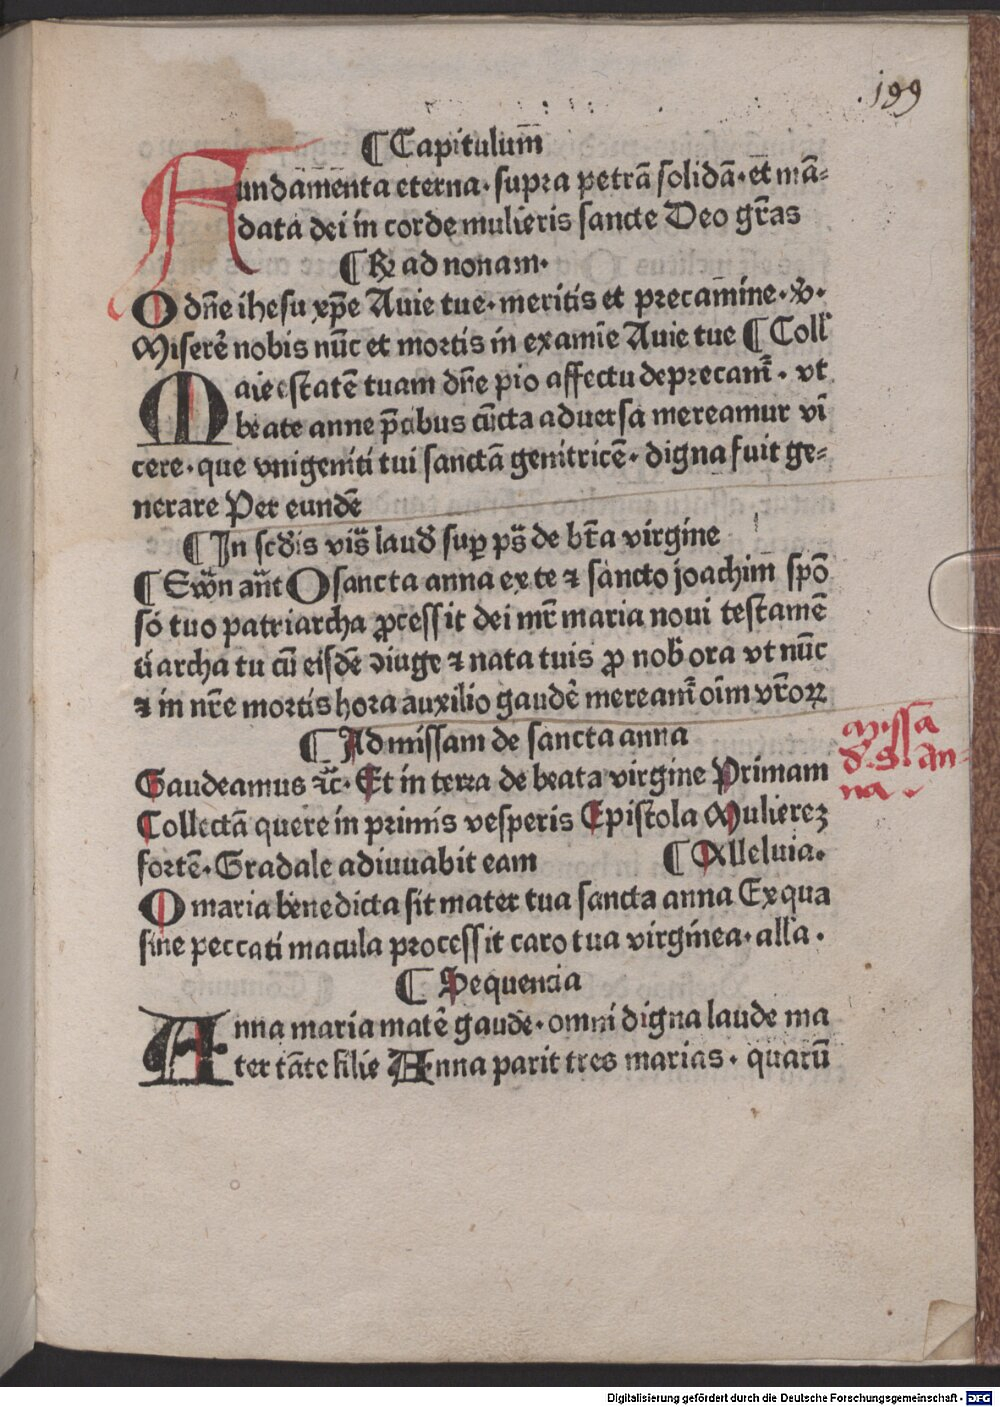 199
¶ Capitulum̄
Fundamēnta eterna· supra petrā solidā· et mā-
data dei in corde mulieris sancte Deo gr̄as
¶ ℟ ad nonam·
O dn̄e ihesu xp̄e Auie tue· meritis et precamine· ℣·
Miserē nobis nūc et mortis in examīe Auie tue ¶ Coll'
Maiestatē tuam dn̄e pio affectu deprecam̄· vt
beate anne p̄cibus cūcta aduersa mereamur vī
cere· que vnigeniti tui sanctā genitricē· digna fuit ge-
nerare Per eundē
¶ In scd̄is vis̄ laud̄ suꝑ ps̄ de bt̄a virgine
¶ Sup̄ an̄t O sancta anna ex te ⁊ sancto joachim spō
so tuo patriarcha ꝓcessit dei mr̄ maria noui testamē
ti archa tu cū eisdē diuge ⁊ nata tuis ꝓ nob' ora vt nūc
⁊ in nr̄e mortis hora auxilio gaudē meream̄ oīm vr̄oꝝ
¶ Ad missam de sancta anna
Gaudeamus ⁊c̄· Et in terra de beata virgine Primam
Collectā quere in primis vesperis Epistola Mulierez
fortē· Gradale adiuuabit eam ¶ Alleluia·
O maria benedicta sit mater tua sancta anna Ex qua
sine peccati macula processit caro tua virginea· all'a·
¶ Sequencia
Anna maria matē gaude· omni digna laude ma
ter tāte filie Anna parit tres marias· quarū
Missa
d. S. An-
na.
Digitalisierung gefördert durch die Deutsche Forschungsgemeinschaft - DFG